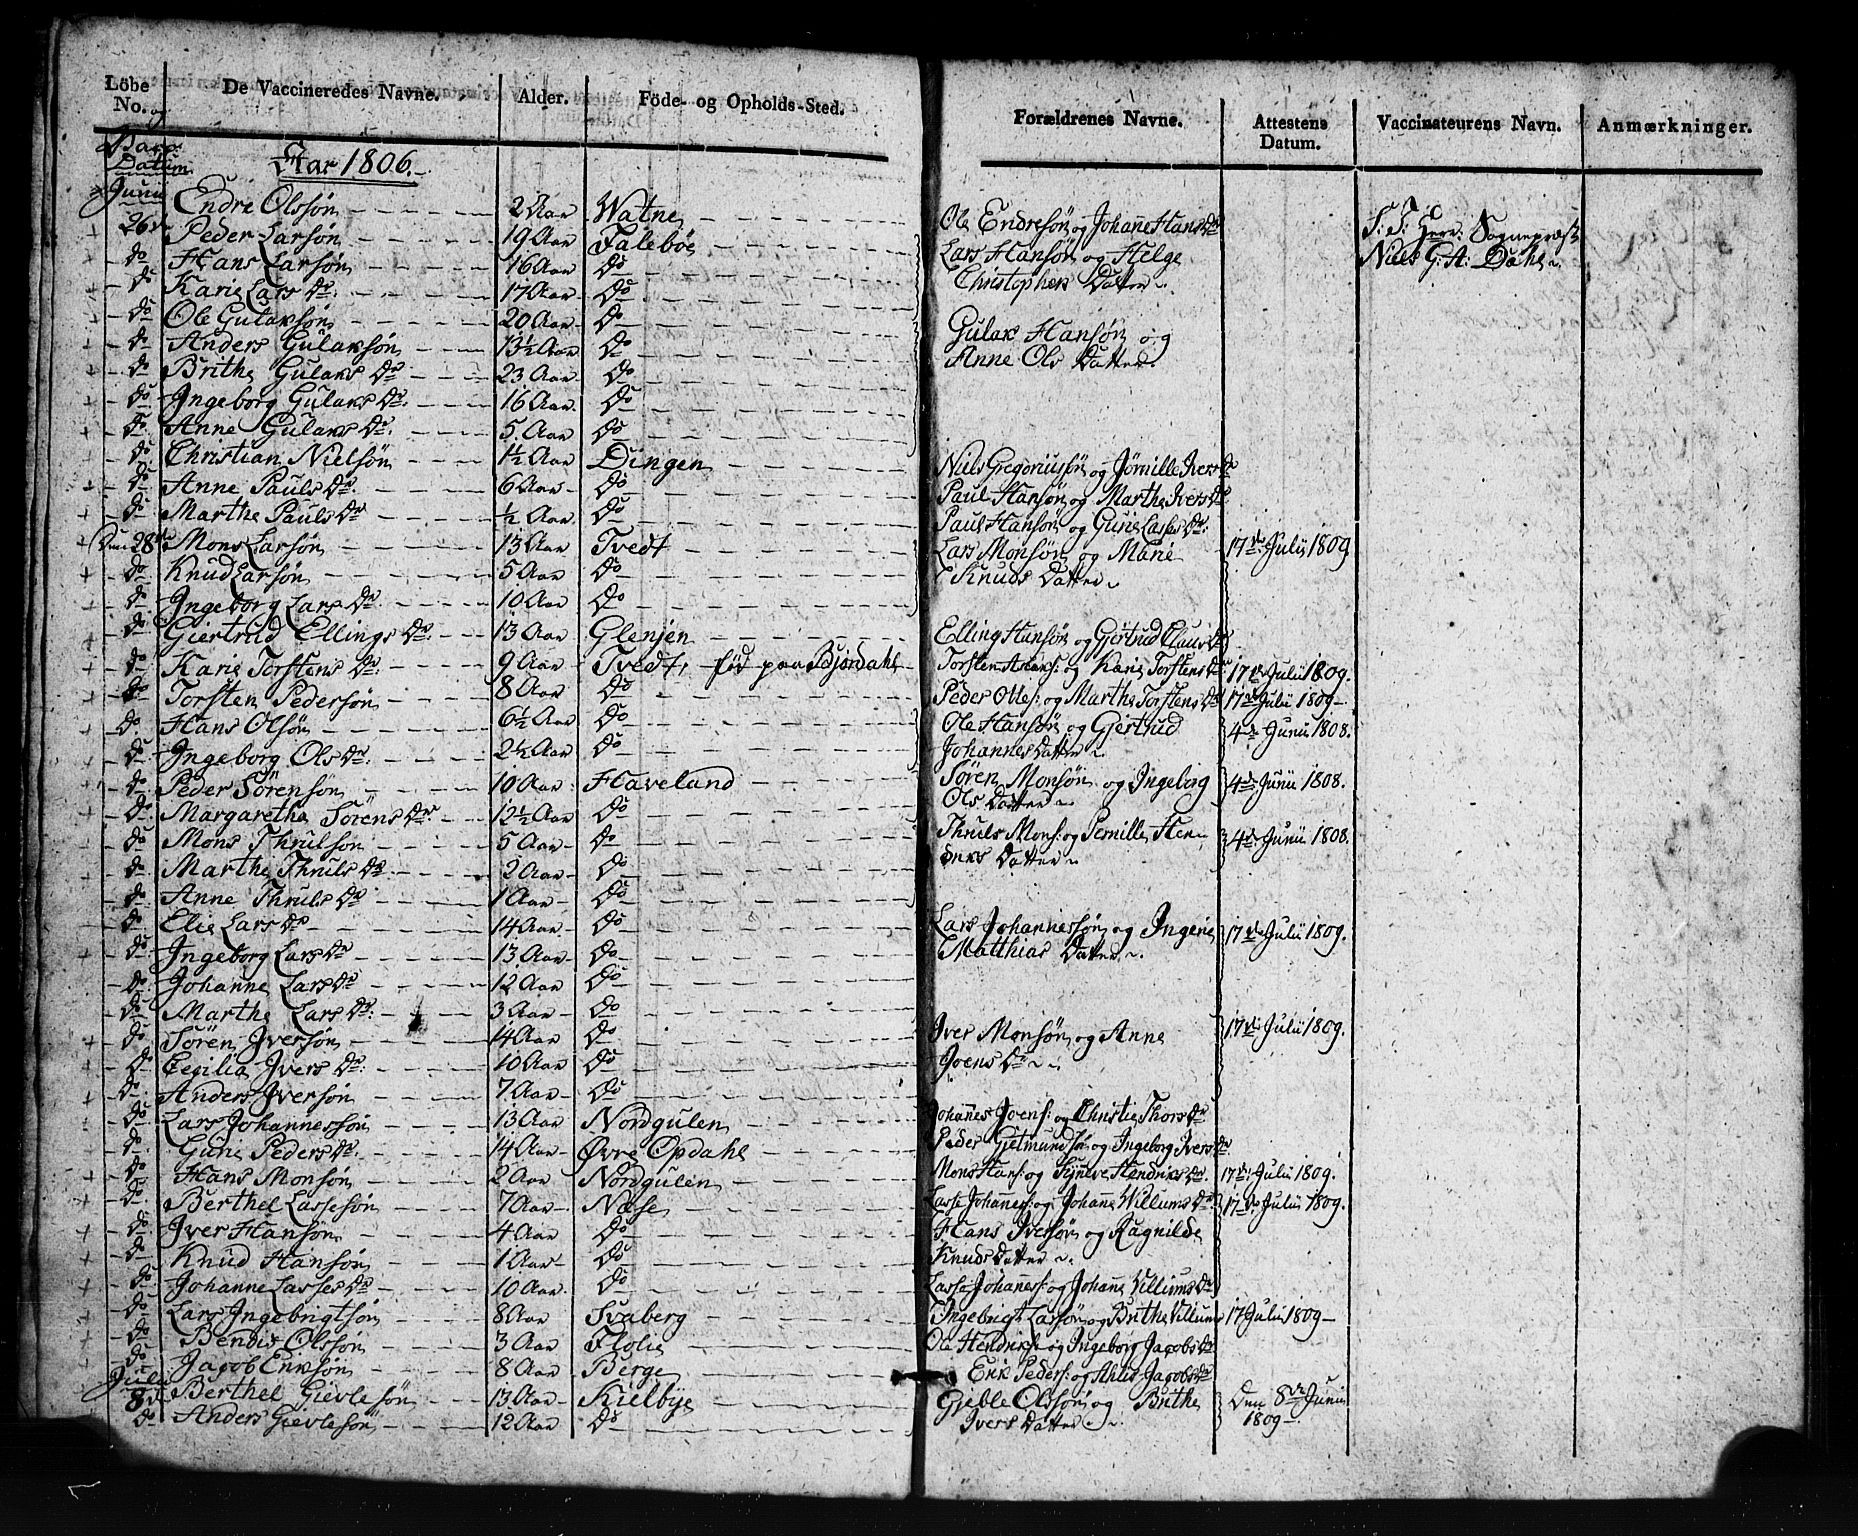 Löbe No. De Vaccineredes Navne. Alder. Föde- og Opholds-Sted. Forældrenes Navne. Attestens Datum. Vaccinateurens Navn. Anmærkninger.
Datum Aar 1806.
Junii
26de Endre Olssøn 2 Aar Watne Ole Endresøn og Johañe Hans Dr S: T: Herr: Sognepræst
Peder Larsøn 19 Aar Talebøe Lars Hansøn og Helge Niels G: A: Dahl
do Hans Larsøn 16 Aar Do Christophers Datter
do Karie Lars Dr. 17 Aar Do
do Ole Gulaksøn 20 Aar Do Gulak Hansøn og
do Anders Gulaksøn 13½ Aar Do Anne Ols Datter.
do Brithe Gulaks Dr 23 Aar Do
do Ingeborg Gulaks Dr. 16 Aar. Do
do Anne Gulaks Dr. 5. Aar Do
do Christian Nielsøn 1½ Aar Dingen Niels Gregoriussøn og Jørnille Ivers Dr
do Anne Pauls Dr. 6 Aar Do Paul Hansøn og Marthe Ivers Dr
do Marthe Pauls Dr ½ Aar Do Paul Hansøn og Gurie Lasses Dr.
Den 28de Mons Larsøn 13 Aar Tvedt Lars Monsøn og Marie 17de Julii 1809
do Knud Larsøn 5 Aar Do Knuds Datter
do Ingeborg Lars Dr. 10 Aar Do
do Giertrud Ellings Dr. 13 Aar Glenjen Elling Hansøn og Gjertrud Claus Dr
do Karie Torstens Dr. 9 Aar Tvedt, fød paa Bjørdahl Torsten Aslaks: og Karie Torstens Dr 17de Julii 1809.
do Torsten Pedersøn 8 Aar Do Peder Ottes: og Marthe Torstens Dr 17de Julii 1809
do Hans Olsøn 6½ Aar Do Ole Hansøn og Gjertrud 4de Junii 1808.
do Ingeborg Ols Dr. 2½ Aar Do Johannes Datter
do Peder Sörensøn 10 Aar Haveland Sören Monsøn og Ingeborg 4de Junii 1808.
do Margarethe Sörens Dr. 12½ Aar Do Ols Datter
do Mons Thrulsøn 5 Aar Do Thruls Mons: og Pernille Hen- 4de Junii 1808.
do Marthe Thruls Dr 2 Aar Do driks Datter
do Anne Thruls Dr 1 Aar Do
do Elie Lars Dr 14 Aar Do Lars Johannessøn og Ingerie 17de Julii 1809.
do Ingeborg Lars Dr 13 Aar Do Matthias Datter
do Johanne Lars Dr 12 Aar Do
do Marthe Lars Dr: 3 Aar Do
do Sören Iversøn 14 Aar Do Iver Monsøn og Anne 17de Julii 1809.
do Cecilia Ivers Dr. 10 Aar Do Joens Dr
do Anders Iversøn 7 Aar Do
do Lars Johannessøn 13 Aar Nordgulen Johañes Joens: og Christie Thors Dr
do Gurie Peders Dr. 14 Aar Øvre Opdahl Peder Gjetmundsøn og Ingeborg Ivers Dr
do Hans Monsøn 2 Aar Nordgulen Mons Hans: og Syneve Hendriks Dr. 17de Julii 1809.
do Berthel Lassesøn 7 Aar Næse Lasse Johañes: og Johañe Villums Dr 17de Julii 1809.
do Iver Hansøn 4 Aar Do Hans Iversøn og Ragnilde
do Knud Hansøn 1 Aar Do Knuds Datter
do Johanne Lasses Dr 10 Aar Do Lasse Johañes: og Johañe Villiums Dr
do Lars Ingebrigtsøn 8 Aar Svaberg Ingebrigt Larsøn og Brithe Villum 17 Julii 1809
do Bendix Olssøn 3 Aar Flolie Ole Hendriks: og Ingeborg Jacobs Dr
do Jacob Eriksøn 8 Aar Berge Erik Peders: og Ahlis Jacobs Dr
Julii
8de Berthel Gievlesøn 13 Aar Kielbye Gieble Olssøn og Brithe Den 8de Junii
do Anders Gievlesøn 12 Aar Do Ivers Datter 1809